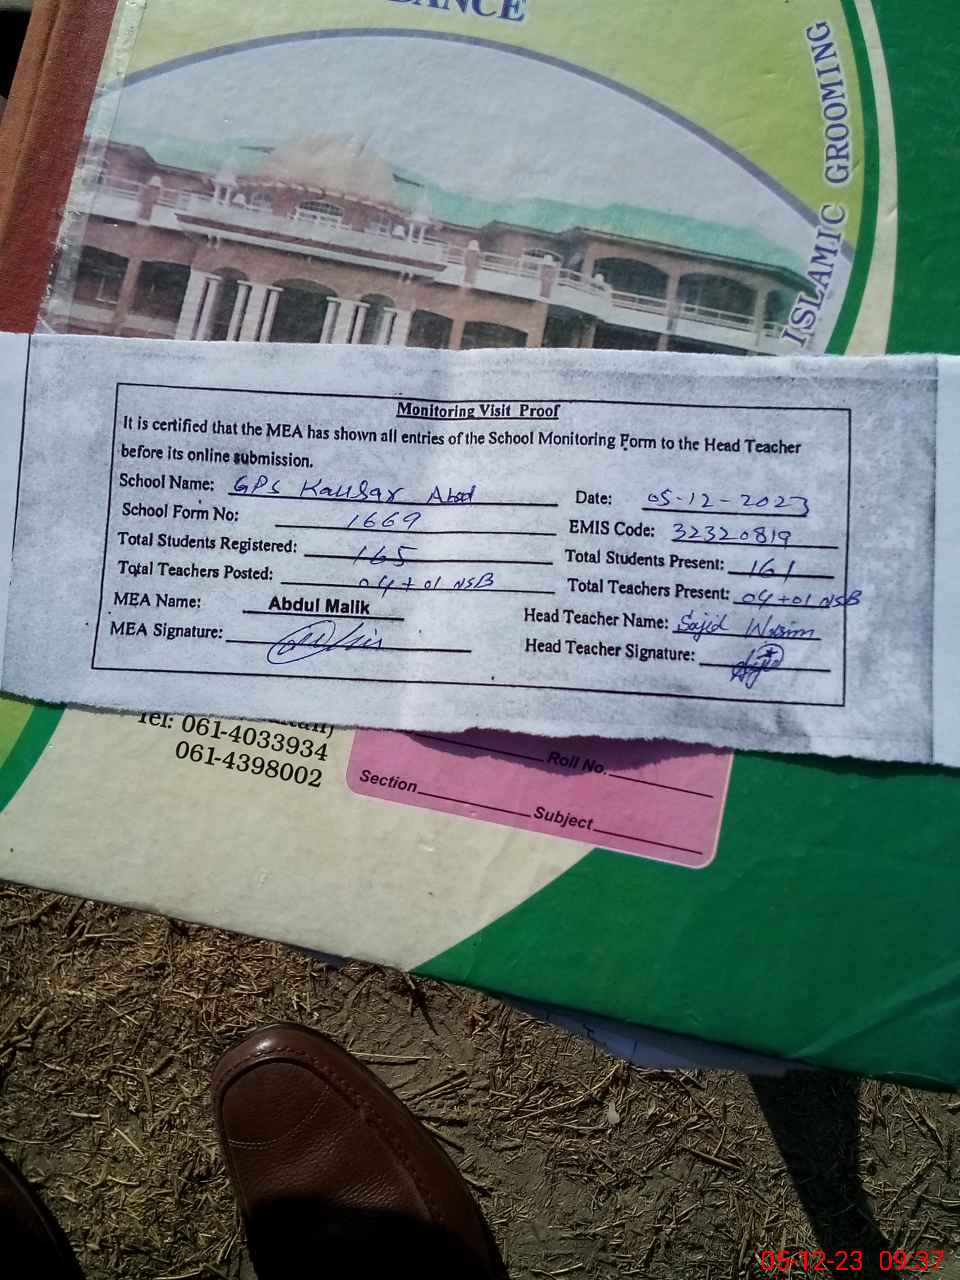 DANCE
ISLAMIC GROOMING
Monitoring Visit Proof
It is certified that the MEA has shown all entries of the School Monitoring Form to the Head Teacher
before its online submission.
School Name: GPS Kausar Abad Date: 05-12-2023
School Form No: 1669 EMIS Code: 32320819
Total Students Registered: 165 Total Students Present: 161
Total Teachers Posted: 04+01 NSB Total Teachers Present: 04+01 NSB
MEA Name: Abdul Malik Head Teacher Name: Sajid Wasim
MEA Signature: Head Teacher Signature:
Tel: 061-4033934
061-4398002
Roll No.
Section Subject
05-12-23 09:37